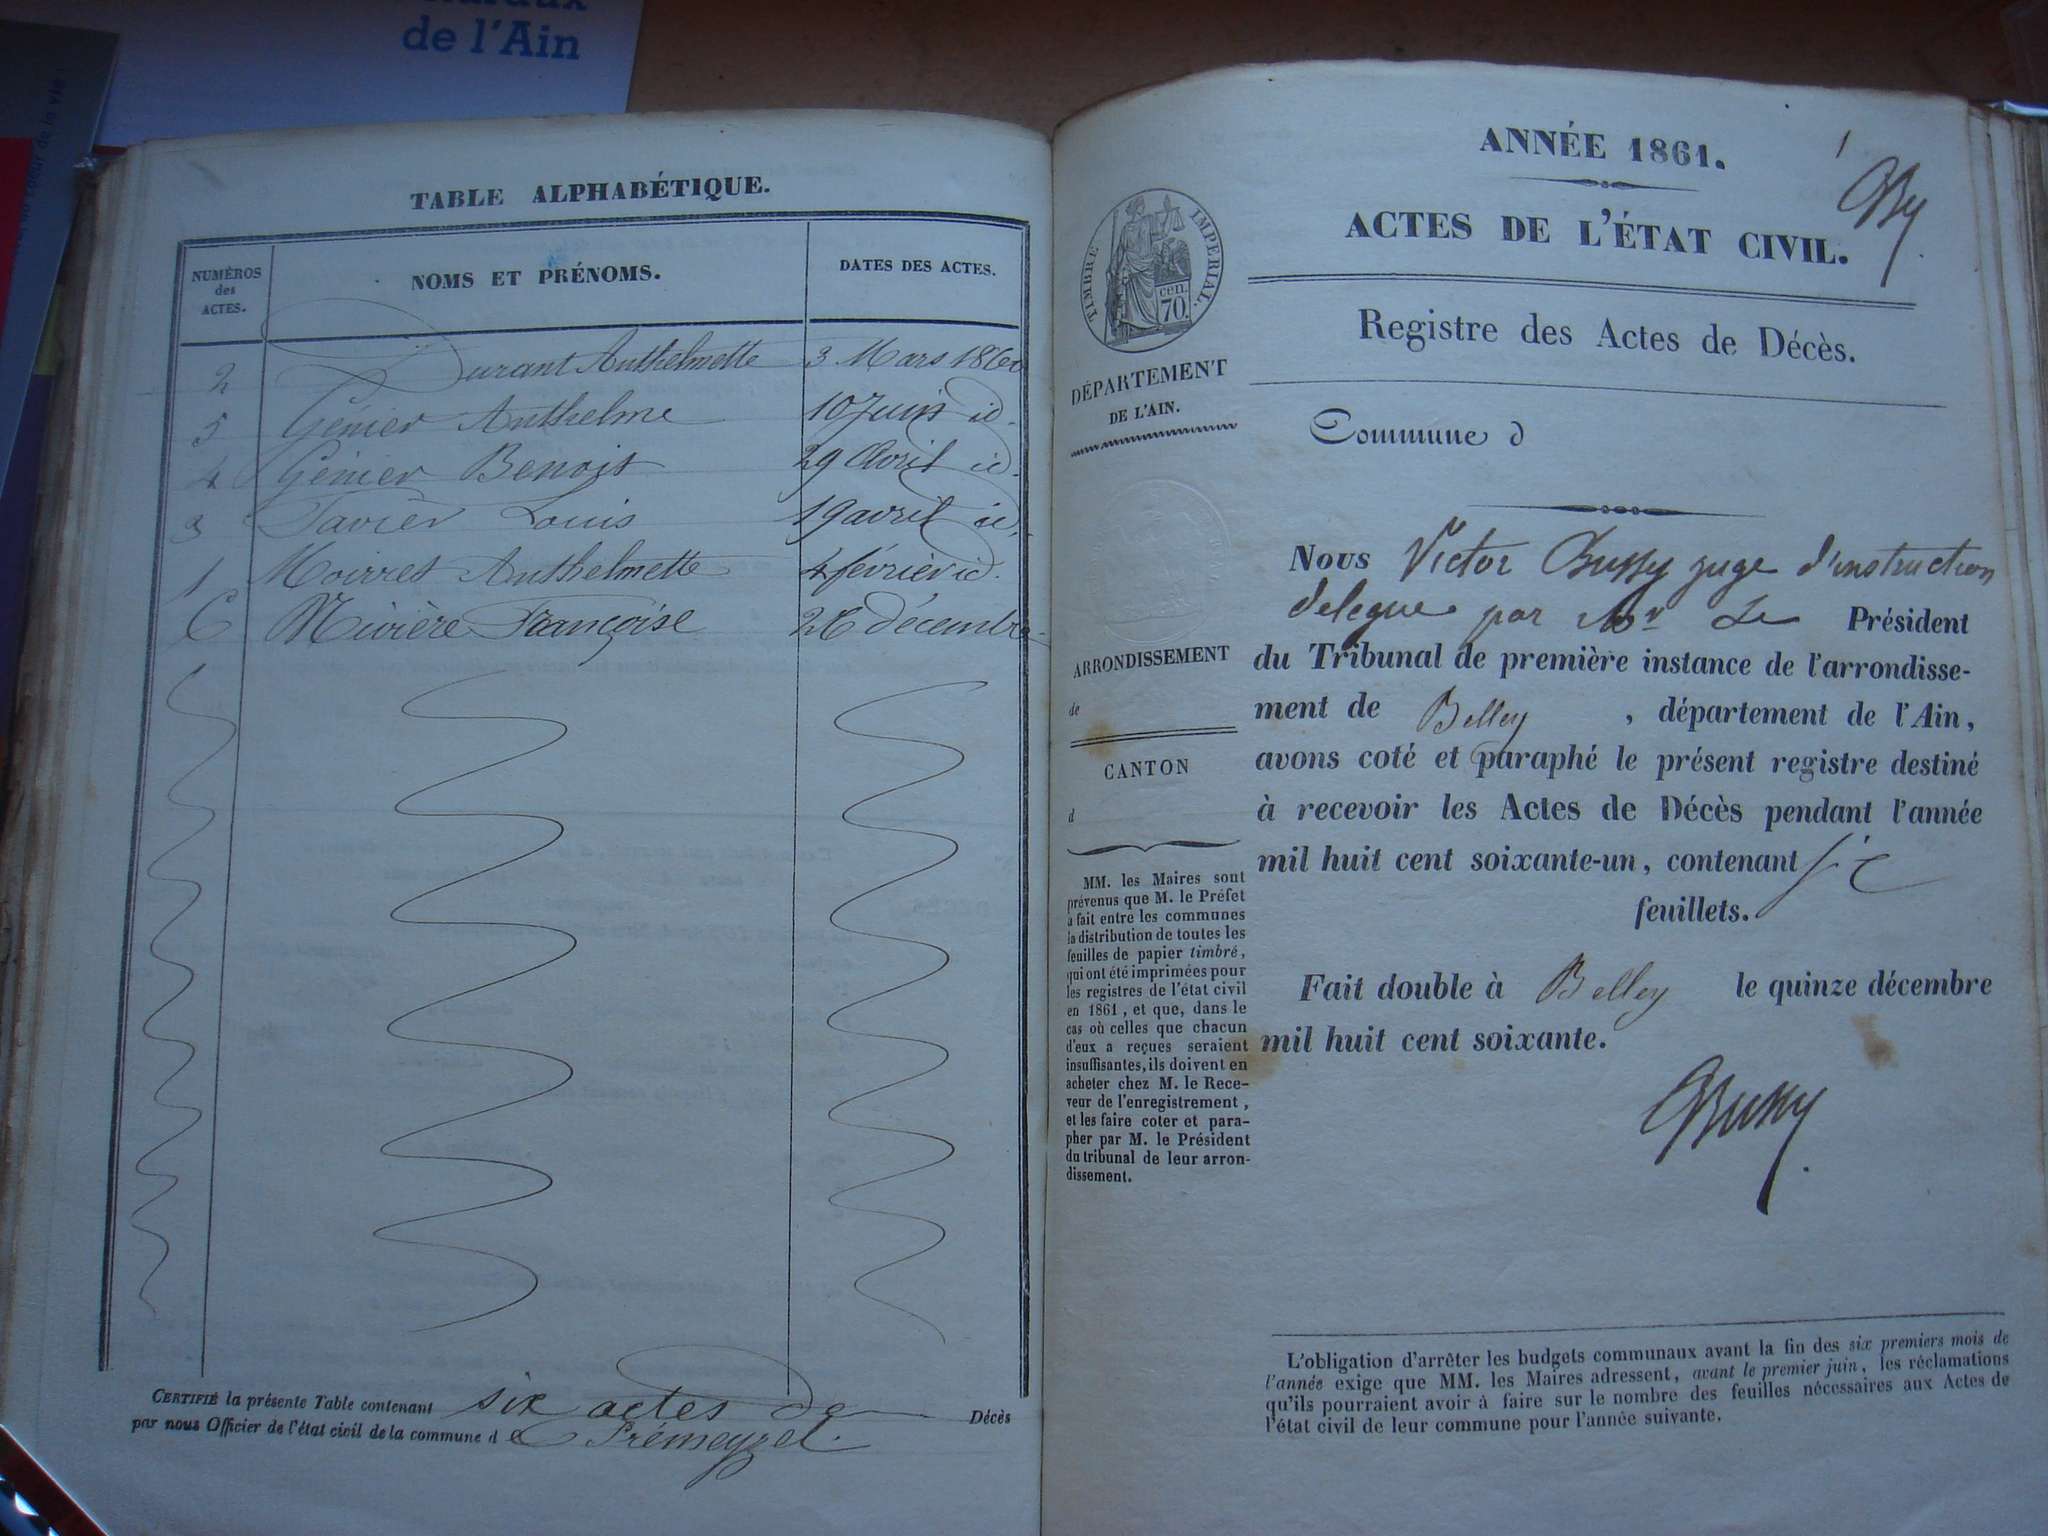 de l'Ain
TABLE ALPHABÉTIQUE.
NUMÉROS
des
ACTES.
NOMS ET PRÉNOMS.
DATES DES ACTES.
2 Durant Anthelmette 3 Mars 1860
5 Génier Anthelme 10 Juin id.
4 Génier Benoit 29 Avril id.
3 Javier Louis 19 avril id.
1 Moirret Anthelmette 4 février id.
6 Rivière Françoise 26 décembre
CERTIFIÉ la présente Table contenant six actes de Décès
par nous Officier de l'état civil de la commune de Prémeyzel.
ANNÉE 1861.
1
ACTES DE L'ÉTAT CIVIL.
Registre des Actes de Décès.
TIMBRE IMPÉRIAL.
70 cen.
DÉPARTEMENT
DE L'AIN.
Commune d
ARRONDISSEMENT
de
CANTON
d
MM. les Maires sont
prévenus que M. le Préfet
a fait entre les communes
la distribution de toutes les
feuilles de papier timbré,
qui ont été imprimées pour
les registres de l'état civil
en 1861, et que, dans le
cas où celles que chacun
d'eux a reçues seraient
insuffisantes, ils doivent en
acheter chez M. le Rece-
veur de l'enregistrement,
et les faire coter et para-
pher par M. le Président
du tribunal de leur arron-
dissement.
Nous Victor Bussy juge d'instruction
delegue par Mr Le Président
du Tribunal de première instance de l'arrondisse-
ment de Belley, département de l'Ain,
avons coté et paraphé le présent registre destiné
à recevoir les Actes de Décès pendant l'année
mil huit cent soixante-un, contenant
feuillets.
Fait double à Belley le quinze décembre
mil huit cent soixante.
Bussy
L'obligation d'arrêter les budgets communaux avant la fin des six premiers mois de
l'année exige que MM. les Maires adressent, avant le premier juin, les réclamations
qu'ils pourraient avoir à faire sur le nombre des feuilles nécessaires aux Actes de
l'état civil de leur commune pour l'année suivante.